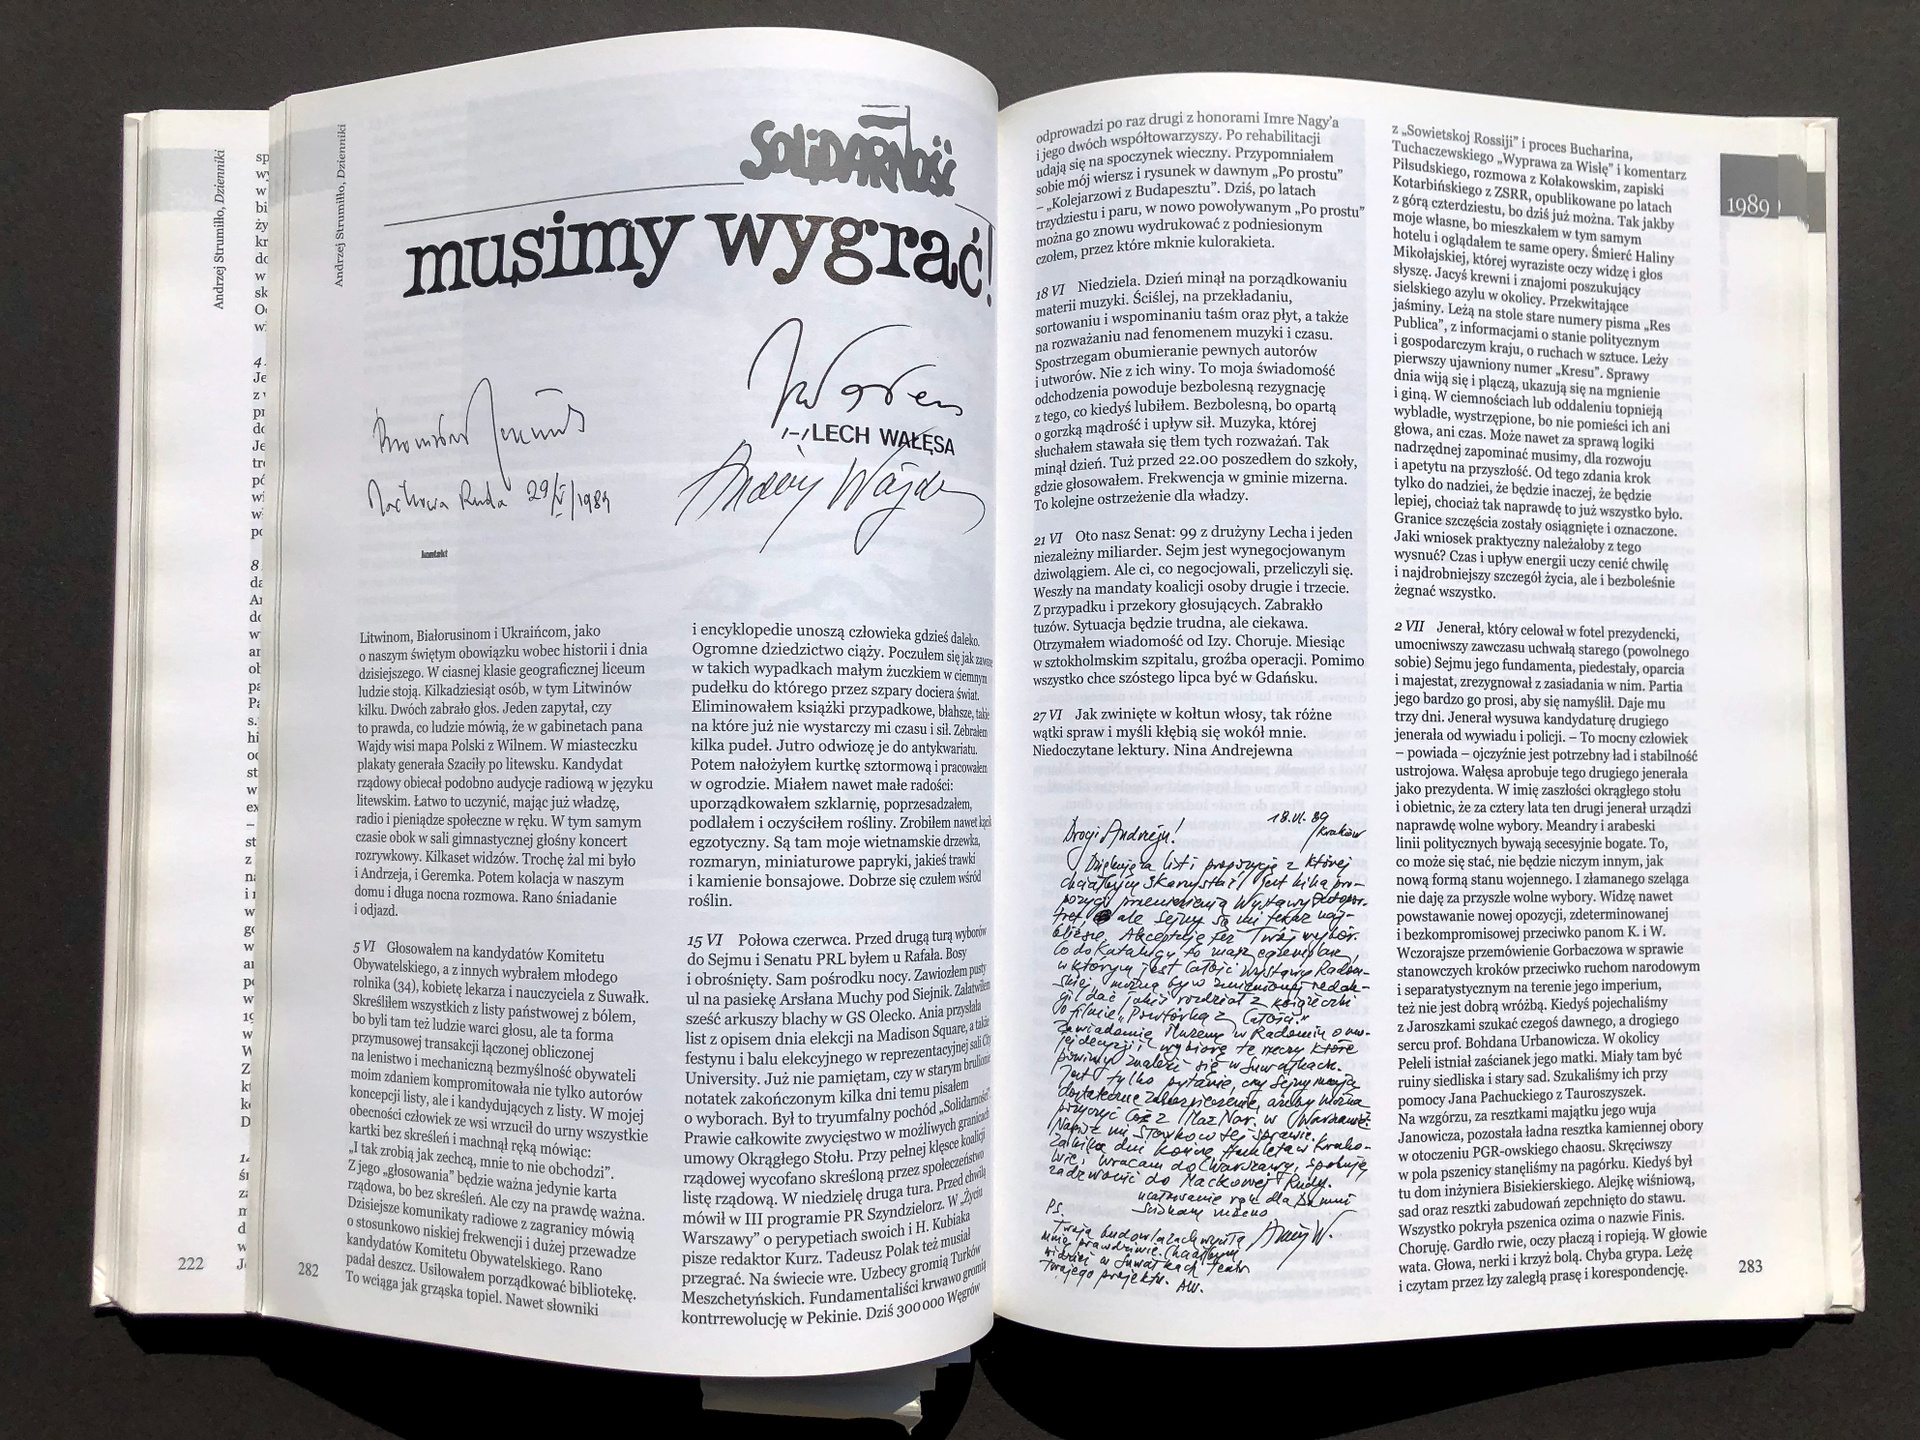 Andrzej Strumiłło, Dzienniki
222
Andrzej Strumiłło, Dzienniki
SOLiDARNOŚĆ
musimy wygrać!
LECH WAŁĘSA
Andrzej Wajda
Maćkowa Ruda 29/V/1989
kontakt
Litwinom, Białorusinom i Ukraińcom, jako
o naszym świętym obowiązku wobec historii i dnia
dzisiejszego. W ciasnej klasie geograficznej liceum
ludzie stoją. Kilkadziesiąt osób, w tym Litwinów
kilku. Dwóch zabrało głos. Jeden zapytał, czy
to prawda, co ludzie mówią, że w gabinetach pana
Wajdy wisi mapa Polski z Wilnem. W miasteczku
plakaty generała Szaciły po litewsku. Kandydat
rządowy obiecał podobno audycje radiową w języku
litewskim. Łatwo to uczynić, mając już władzę,
radio i pieniądze społeczne w ręku. W tym samym
czasie obok w sali gimnastycznej głośny koncert
rozrywkowy. Kilkaset widzów. Trochę żal mi było
i Andrzeja, i Geremka. Potem kolacja w naszym
domu i długa nocna rozmowa. Rano śniadanie
i odjazd.
5 VI Głosowałem na kandydatów Komitetu
Obywatelskiego, a z innych wybrałem młodego
rolnika (34), kobietę lekarza i nauczyciela z Suwałk.
Skreśliłem wszystkich z listy państwowej z bólem,
bo byli tam też ludzie warci głosu, ale ta forma
przymusowej transakcji łączonej obliczonej
na lenistwo i mechaniczną bezmyślność obywateli
moim zdaniem kompromitowała nie tylko autorów
koncepcji listy, ale i kandydujących z listy. W mojej
obecności człowiek ze wsi wrzucił do urny wszystkie
kartki bez skreśleń i machnął ręką mówiąc:
„I tak zrobią jak zechcą, mnie to nie obchodzi”.
Z jego „głosowania” będzie ważna jedynie karta
rządowa, bo bez skreśleń. Ale czy na prawdę ważna.
Dzisiejsze komunikaty radiowe z zagranicy mówią
o stosunkowo niskiej frekwencji i dużej przewadze
kandydatów Komitetu Obywatelskiego. Rano
padał deszcz. Usiłowałem porządkować bibliotekę.
To wciąga jak grząska topiel. Nawet słowniki
282
i encyklopedie unoszą człowieka gdzieś daleko.
Ogromne dziedzictwo ciąży. Poczułem się jak zawsze
w takich wypadkach małym żuczkiem w ciemnym
pudełku do którego przez szpary dociera świat.
Eliminowałem książki przypadkowe, błahsze, takie
na które już nie wystarczy mi czasu i sił. Zebrałem
kilka pudeł. Jutro odwiozę je do antykwariatu.
Potem nałożyłem kurtkę sztormową i pracowałem
w ogrodzie. Miałem nawet małe radości:
uporządkowałem szklarnię, poprzesadzałem,
podlałem i oczyściłem rośliny. Zrobiłem nawet kącik
egzotyczny. Są tam moje wietnamskie drzewka,
rozmaryn, miniaturowe papryki, jakieś trawki
i kamienie bonsajowe. Dobrze się czułem wśród
roślin.
15 VI Połowa czerwca. Przed drugą turą wyborów
do Sejmu i Senatu PRL byłem u Rafała. Bosy
i obrośnięty. Sam pośrodku nocy. Zawiozłem pusty
ul na pasiekę Arsłana Muchy pod Siejnik. Załatwiłem
sześć arkuszy blachy w GS Olecko. Ania przysłała
list z opisem dnia elekcji na Madison Square, a także
festynu i balu elekcyjnego w reprezentacyjnej sali City
University. Już nie pamiętam, czy w starym brulionie
notatek zakończonym kilka dni temu pisałem
o wyborach. Był to tryumfalny pochód „Solidarności”.
Prawie całkowite zwycięstwo w możliwych granicach
umowy Okrągłego Stołu. Przy pełnej klęsce koalicji
rządowej wycofano skreśloną przez społeczeństwo
listę rządową. W niedzielę druga tura. Przed chwilą
mówił w III programie PR Szyndzielorz. W „Życiu
Warszawy” o perypetiach swoich i H. Kubiaka
pisze redaktor Kurz. Tadeusz Polak też musiał
przegrać. Na świecie wre. Uzbecy gromią Turków
Meszchetyńskich. Fundamentaliści krwawo gromią
kontrrewolucję w Pekinie. Dziś 300 000 Węgrów
odprowadzi po raz drugi z honorami Imre Nagy’a
i jego dwóch współtowarzyszy. Po rehabilitacji
udają się na spoczynek wieczny. Przypomniałem
sobie mój wiersz i rysunek w dawnym „Po prostu”
– „Kolejarzowi z Budapesztu”. Dziś, po latach
trzydziestu i paru, w nowo powoływanym „Po prostu”
można go znowu wydrukować z podniesionym
czołem, przez które mknie kulorakieta.
18 VI Niedziela. Dzień minął na porządkowaniu
materii muzyki. Ściślej, na przekładaniu,
sortowaniu i wspominaniu taśm oraz płyt, a także
na rozważaniu nad fenomenem muzyki i czasu.
Spostrzegam obumieranie pewnych autorów
i utworów. Nie z ich winy. To moja świadomość
odchodzenia powoduje bezbolesną rezygnację
z tego, co kiedyś lubiłem. Bezbolesną, bo opartą
o gorzką mądrość i upływ sił. Muzyka, której
słuchałem stawała się tłem tych rozważań. Tak
minął dzień. Tuż przed 22.00 poszedłem do szkoły,
gdzie głosowałem. Frekwencja w gminie mizerna.
To kolejne ostrzeżenie dla władzy.
21 VI Oto nasz Senat: 99 z drużyny Lecha i jeden
niezależny miliarder. Sejm jest wynegocjowanym
dziwolągiem. Ale ci, co negocjowali, przeliczyli się.
Weszły na mandaty koalicji osoby drugie i trzecie.
Z przypadku i przekory głosujących. Zabrakło
tuzów. Sytuacja będzie trudna, ale ciekawa.
Otrzymałem wiadomość od Izy. Choruje. Miesiąc
w sztokholmskim szpitalu, groźba operacji. Pomimo
wszystko chce szóstego lipca być w Gdańsku.
27 VI Jak zwinięte w kołtun włosy, tak różne
wątki spraw i myśli kłębią się wokół mnie.
Niedoczytane lektury. Nina Andrejewna
18.VI.89
Kraków
Drogi Andrzeju!
Dziękuję za list i propozycję z której
chciałbym skorzystać. Jest kilka pro-
pozycji przeniesienia Wystawy Autopor-
tret ale Sejny są mi teraz naj-
bliższe. Akceptuję też Twój wybór.
Co do Katalogu, to masz egzemplarz
w którym jest całość wystawy Radom-
skiej, można by w zmienionej redak-
cji dać jakiś rozdział z książeczki
o filmie „Powtórka z Całości.”
Zawiadomię Muzeum w Radomiu o mo-
jej decyzji i wybiorę te rzeczy które
powinny znaleźć się w Suwałkach.
Jest tylko pytanie, czy Sejny mają
dostateczne zabezpieczenie, ażeby można
pożyczyć coś z Muz. Nar. w Warszawie.
Napisz mi słówko w tej sprawie.
Za kilka dni kończę Hamleta w Krako-
wie, wracam do Warszawy, spróbuję
zadzwonić do Maćkowej Rudy.
ucałowanie rąk dla Danusi
Ściskam mocno
Andrzej W.
PS.
Twoja
mnie prawdziwie. Chciałbym
widzieć w Suwałkach teatr
Twojego projektu. AW.
z „Sowietskoj Rossiji” i proces Bucharina,
Tuchaczewskiego „Wyprawa za Wisłę” i komentarz
Piłsudskiego, rozmowa z Kołakowskim, zapiski
Kotarbińskiego z ZSRR, opublikowane po latach
z górą czterdziestu, bo dziś już można. Tak jakby
moje własne, bo mieszkałem w tym samym
hotelu i oglądałem te same opery. Śmierć Haliny
Mikołajskiej, której wyraziste oczy widzę i głos
słyszę. Jacyś krewni i znajomi poszukujący
sielskiego azylu w okolicy. Przekwitające
jaśminy. Leżą na stole stare numery pisma „Res
Publica”, z informacjami o stanie politycznym
i gospodarczym kraju, o ruchach w sztuce. Leży
pierwszy ujawniony numer „Kresu”. Sprawy
dnia wiją się i plączą, ukazują się na mgnienie
i giną. W ciemnościach lub oddaleniu topnieją
wybladłe, wystrzępione, bo nie pomieści ich ani
głowa, ani czas. Może nawet za sprawą logiki
nadrzędnej zapominać musimy, dla rozwoju
i apetytu na przyszłość. Od tego zdania krok
tylko do nadziei, że będzie inaczej, że będzie
lepiej, chociaż tak naprawdę to już wszystko było.
Granice szczęścia zostały osiągnięte i oznaczone.
Jaki wniosek praktyczny należałoby z tego
wysnuć? Czas i upływ energii uczy cenić chwilę
i najdrobniejszy szczegół życia, ale i bezboleśnie
żegnać wszystko.
2 VII Jenerał, który celował w fotel prezydencki,
umocniwszy zawczasu uchwałą starego (powolnego
sobie) Sejmu jego fundamenta, piedestały, oparcia
i majestat, zrezygnował z zasiadania w nim. Partia
jego bardzo go prosi, aby się namyślił. Daje mu
trzy dni. Jenerał wysuwa kandydaturę drugiego
jenerała od wywiadu i policji. – To mocny człowiek
– powiada – ojczyźnie jest potrzebny ład i stabilność
ustrojowa. Wałęsa aprobuje tego drugiego jenerała
jako prezydenta. W imię zaszłości okrągłego stołu
i obietnic, że za cztery lata ten drugi jenerał urządzi
naprawdę wolne wybory. Meandry i arabeski
linii politycznych bywają secesyjnie bogate. To,
co może się stać, nie będzie niczym innym, jak
nową formą stanu wojennego. I złamanego szeląga
nie daję za przyszłe wolne wybory. Widzę nawet
powstawanie nowej opozycji, zdeterminowanej
i bezkompromisowej przeciwko panom K. i W.
Wczorajsze przemówienie Gorbaczowa w sprawie
stanowczych kroków przeciwko ruchom narodowym
i separatystycznym na terenie jego imperium,
też nie jest dobrą wróżbą. Kiedyś pojechaliśmy
z Jaroszkami szukać czegoś dawnego, a drogiego
sercu prof. Bohdana Urbanowicza. W okolicy
Peleli istniał zaścianek jego matki. Miały tam być
ruiny siedliska i stary sad. Szukaliśmy ich przy
pomocy Jana Pachuckiego z Tauroszyszek.
Na wzgórzu, za resztkami majątku jego wuja
Janowicza, pozostała ładna resztka kamiennej obory
w otoczeniu PGR-owskiego chaosu. Skręciwszy
w pola pszenicy stanęliśmy na pagórku. Kiedyś był
tu dom inżyniera Bisiekierskiego. Alejkę wiśniową,
sad oraz resztki zabudowań zepchnięto do stawu.
Wszystko pokryła pszenica ozima o nazwie Finis.
Choruję. Gardło rwie, oczy płaczą i ropieją. W głowie
wata. Głowa, nerki i krzyż bolą. Chyba grypa. Leżę
i czytam przez łzy zaległą prasę i korespondencję.
1989
283